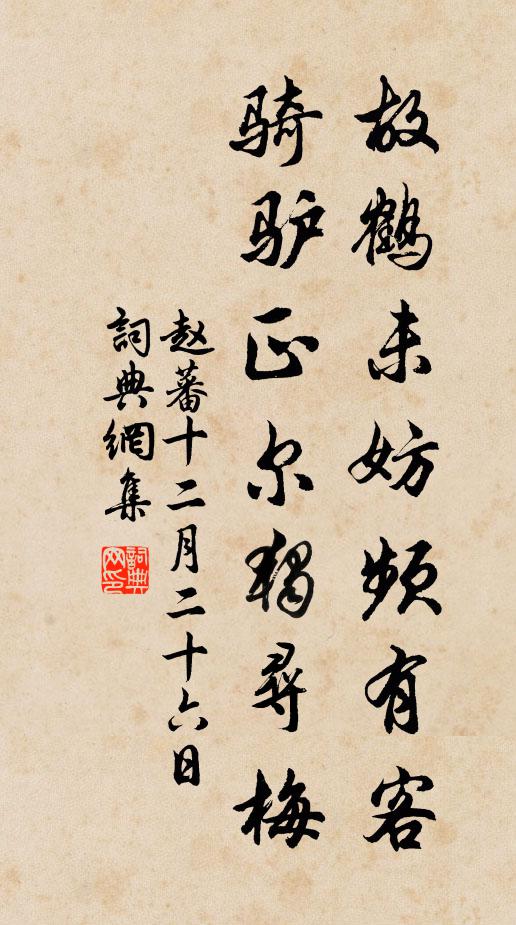 故鹤未妨频有客
骑驴正尔独寻梅
赵蕃十二月二十六日
词典網集
詞典網印